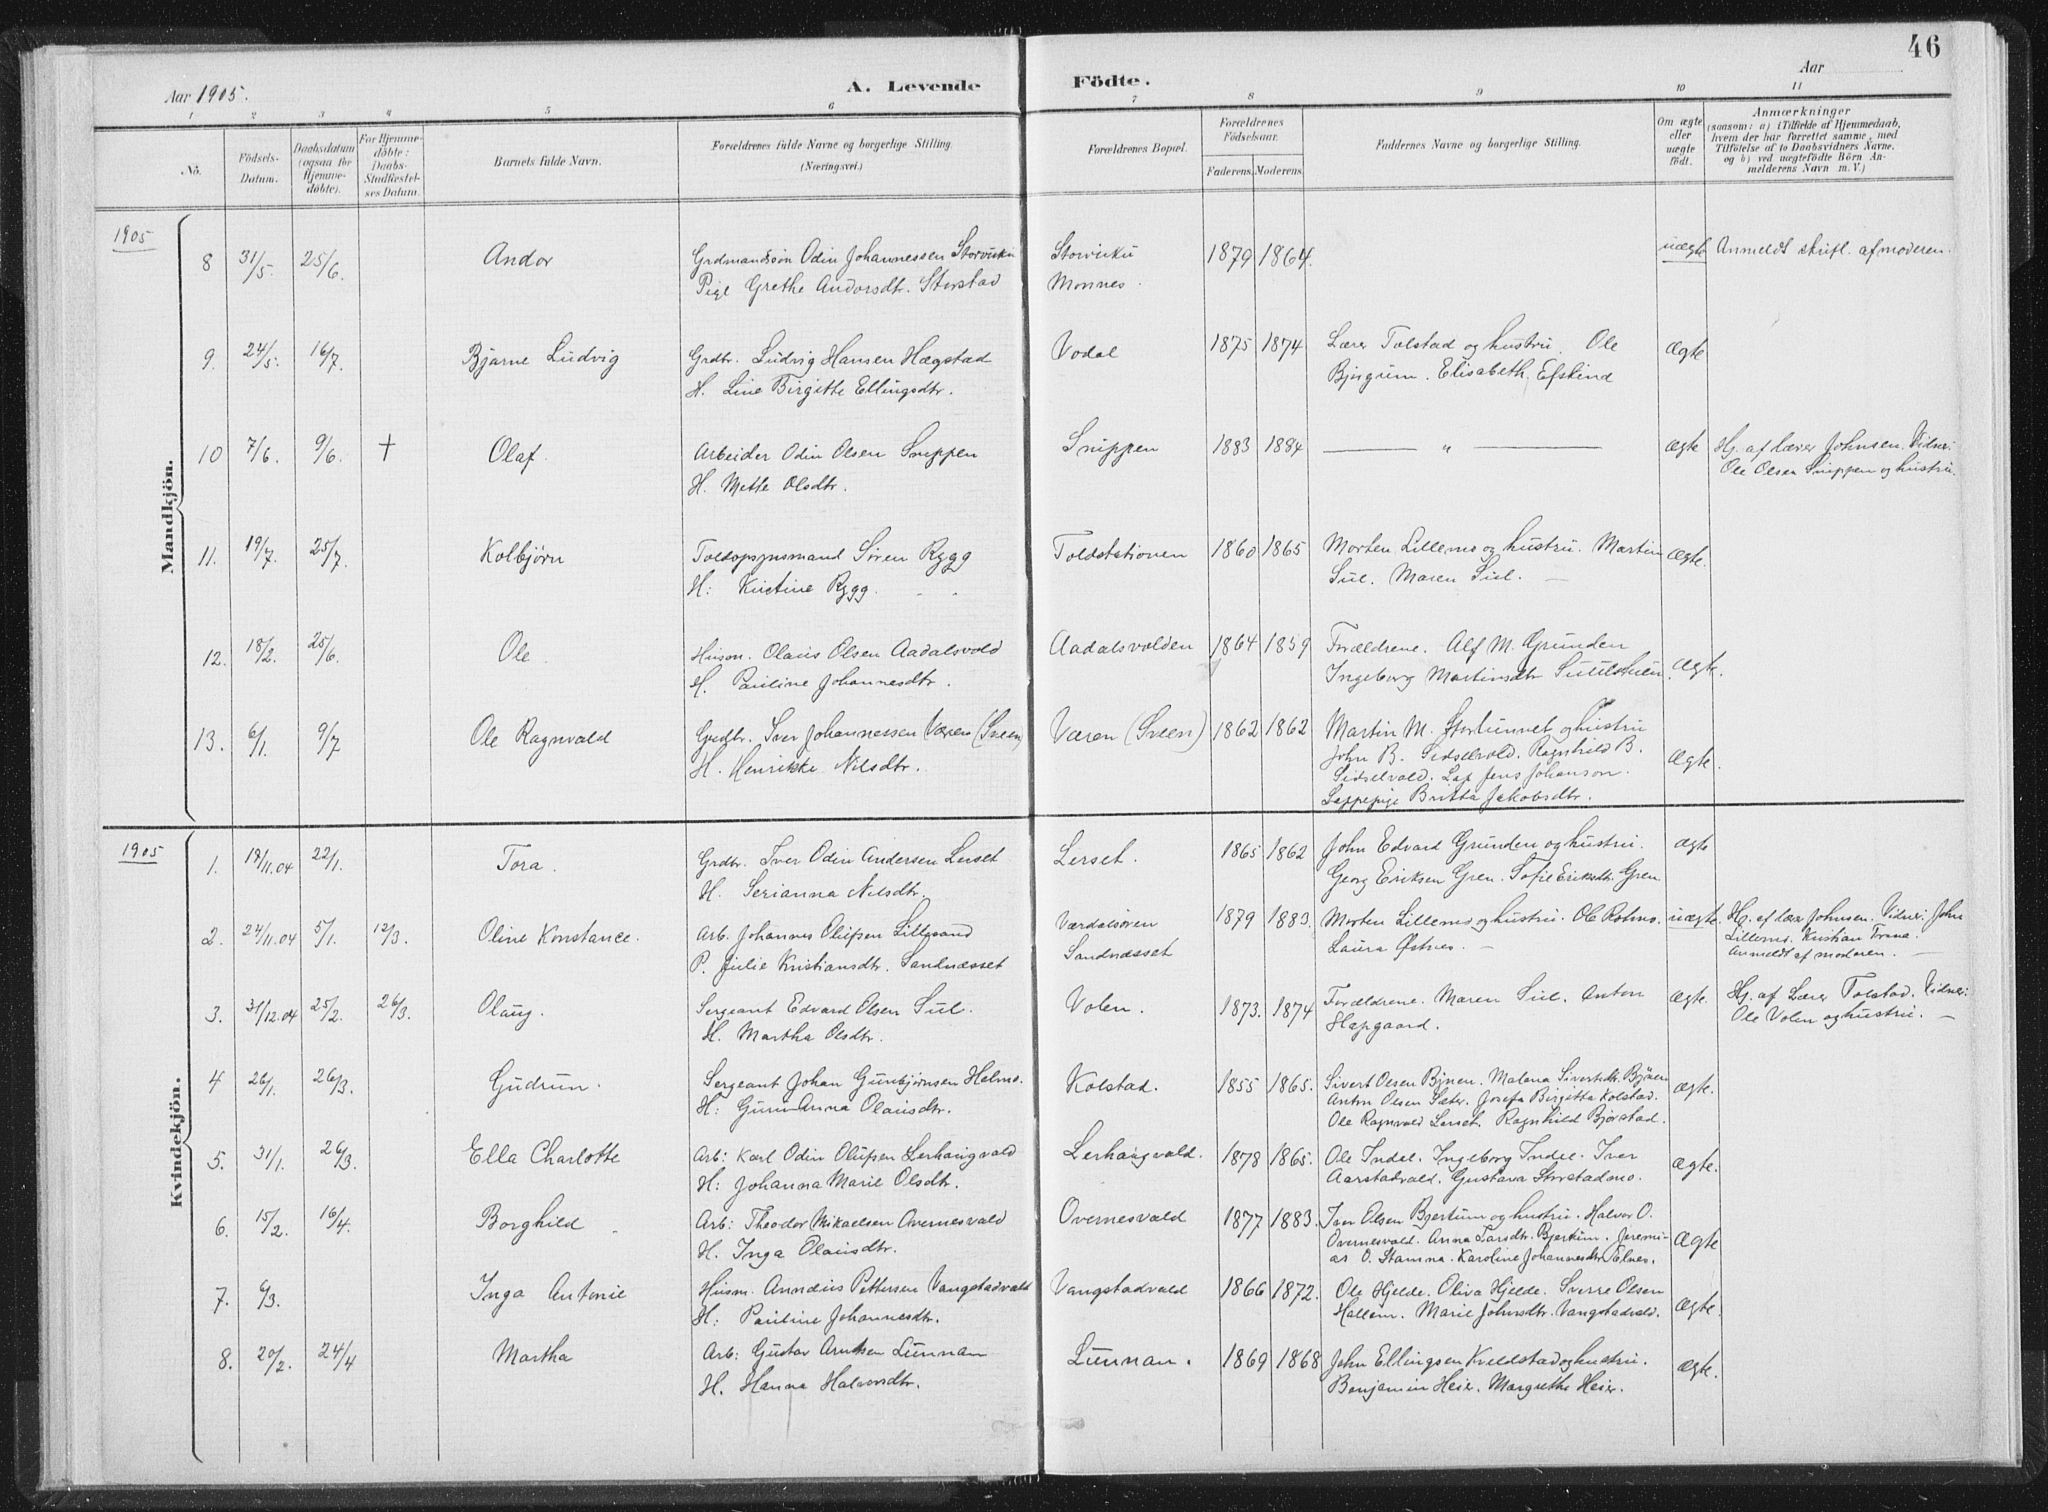 46
Aar 1905.
A. Levende Födte.
Aar
1 2 3 4 5 6 7 8 9 10 11
No.
Födsels-Datum.
Daabsdatum (ogsaa for Hjemmedöbte).
For Hjemmedöbte: Daabs-Stadfæstelses Datum.
Barnets fulde Navn.
Forældrenes fulde Navne og borgerlige Stilling. (Næringsvei.)
Forældrenes Bopæl.
Forældrenes Födselsaar.
Faderens. Moderens.
Faddernes Navne og borgerlige Stilling.
Om ægte eller uægte födt.
Anmærkninger
(saasom: a) i Tilfælde af Hjemmedaab, hvem der har forrettet samme, med Tilföielse af to Daabsvidners Navne, og b) ved uægtefödte Börn Anmelderens Navn m. V.)
Mandkjön.
1905
8 31/5. 25/6. Andor Grdmandssøn Odin Johannessen Storvuku Storvuku 1879 1864. uægte Anmeldt skriftl. af moderen.
Pige Grethe Andorsdtr. Storstad Monnes.
9. 24/5. 16/7. Bjarne Ludvig Grdbr. Ludvig Hansen Hægstad Vodal 1875 1874 Lærer Tolstad og hustru. Ole ægte
H. Line Birgitte Ellingsdtr. Bjugum. Elisabeth Efskind
10 7/6. 9/6. + Olaf. Arbeider Odin Olsen Snippen Snippen 1883 1884 — " — ægte Hj. af lærer Johnsen. Vidner:
H. Mette Olsdtr. Ole Olsen Snippen og hustru.
11. 19/7. 25/7. Kolbjørn Toldopsynsmand Søren Rygg Toldstationen 1860 1865 Morten Lillemo og hustru. Martin ægte.
H: Kristine Rygg. Sul. Maren Sul. —
12. 18/2. 25/6. Ole Husm. Olaus Olsen Aadalsvold Aadalsvolden 1864 1859 Forældrene. Alf M. Grunden
H. Pauline Johannesdtr. Ingeborg Martinsdtr ægte.
13. 6/1. 9/7 Ole Ragnvald Grdbr. Iver Johannessen Væren (Sveen) Væren (Sveen) 1862 1862 Martin M. Storlunnet og hustru
H. Henrikke Nilsdtr. John B. Sidselvold. Ragnhild B. ægte.
Sidselvold. Lap Jens Johanson.
Lappepige Britta Jakobsdtr.
Kvindekjön.
1905
1. 18/11.04 22/1. Tora. Grdbr. Iver Odin Andersen Lerset Lerset. 1865 1862 John Edvard Grunden og hustru. ægte
H. Serianna Nilsdtr. Georg Eriksen Gren. Sofie Eriksdtr. Gren
2. 24/11.04 5/1. 12/3. Oline Konstance. Arb. Johannes Olufsen Lillesand Værdalsøren 1879 1883. Morten Lillemo og hustru. Ole Rotmo. uægte. Hj. af lærer Johnsen. Vidner: John
P. Julie Kristiansdtr. Sandnesset Sandnæsset Laura Østnes. — Lillemo. Kristian Trana.
Anmeldt af moderen. —
3. 31/12.04 25/2. 26/3. Olaug. Sergeant Edvard Olsen Sul. Volen. 1873. 1874 Forældrene. Maren Sul. Anton ægte. Hj. af Lærer Tolstad. Vidner:
H. Martha Olsdtr. Hapgaard. Ole Volen og hustru. —
4 26/1. 26/3. Gudrun. Sergeant Johan Gunbjørnsen Helmo. Kolstad. 1855 1865. Sivert Olsen Bynen. Malena Sivertsdtr. Bjønen ægte.
H: Gunn Anna Olausdtr. Anton Olsen Sæter. Josefa Birgitta Kolstad.
Ole Ragnvald Lerset. Ragnhild Bjørstad.
5. 31/1. 26/3. Ella Charlotte Arb: Karl Odin Olufsen Lerhaugvald Lerhaugvald. 1878 1865. Ole Indal. Ingeborg Indal. Iver ægte.
H: Johanna Marie Olsdtr. Aarstadvald. Gustava Storstadmo.
6. 15/2. 16/4. Borghild Arb: Theodor Mikaelsen Overnesvald Overnesvald 1877 1883. Iver Olsen Bjertum og hustru. Halvor O.
H. Inga Olausdtr. Overnesvald. Anna Larsdtr. Bjertum. Jeremi- ægte
as O. Stamna. Karoline Johannesdtr. Elnes.
7. 6/3. Inga Antonie Husm. Annæus Pettersen Vangstadvald Vangstadvald 1866 1872. Ole Hjelde. Oliva Hjelde. Sverre Olsen
H: Pauline Johannesdtr. Hallem. Marie Johnsdtr. Vangstadvald. ægte.
8. 20/2. 24/4 Martha Arb: Gustav Arntsen Lunnan Lunnan. 1869 1868 John Ellingsen Kveldstad og hustru.
H. Hanna Halvorsdtr. Benjamin Heier. Margrethe Heier. ægte.